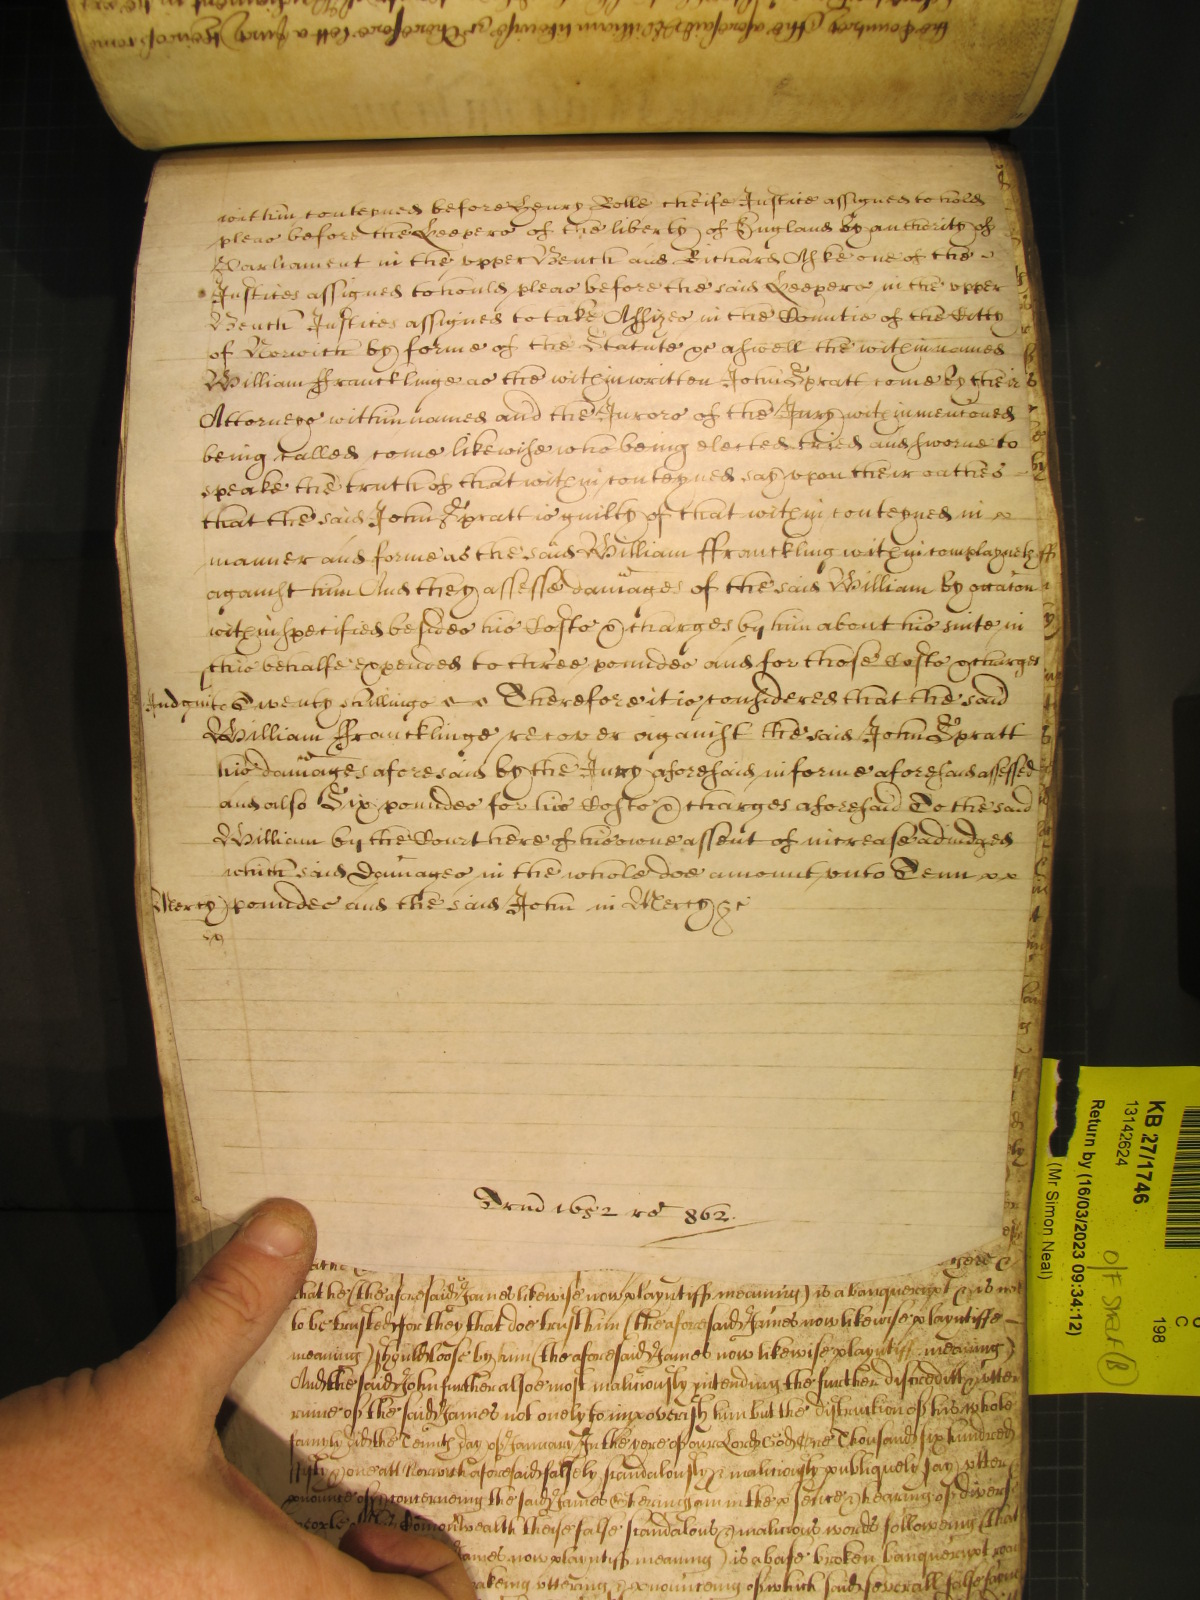 the Countrey & the aforesaid William likewise &c Therefore lett a Jury thereof come
within conteyned before Henry Rolle cheife Justice assigned to hold
pleas before the Keepers of the liberty of England by authority of
Parliament in the upper Bench and Richard Aske one of the
Justices assigned to hould pleas before the said Keepers in the upper
Bench Justices assigned to take Assizes in the Countie of the Citty
of Norwich by forme of the Statute &c aswell the within named
William Francklinge as the within written John Spratt come by their
Attorneys within named and the Jurors of the Jury within mencioned
being called come likewise who being elected tried and sworne to
speake the truth of that within conteyned say upon their oathes
that the said John Spratt is guilty of that within conteyned in
manner and forme as the said William ffranckling within complayneth
against him And they assesse damages of the said William by occasion
within specified besides his Costs & charges by him about his suite in
this behalfe expended to three poundes and for those Costs & charges
Judgmt to Twenty shillings Therefore it is considered that the said
William ffrancklinge recover against the said John Spratt
his damages aforesaid by the Jury aforesaid in forme aforesaid assessed
and also Six poundes for his Costs & charges aforesaid To the said
William by the Court here of his owne assent of increase adiudged
which said Damages in the whole doe amount unto Tenn
Mercy poundes and the said John in Mercy &c
Trin 1652 ro 862
that he (the aforesaid James likewise now playntiff meaning) is a banquerupt & is not
to be trusted for they that doe trust him (the aforesaid James now likewise playntiffe
meaning) should loose by him (the aforesaid James now likewise playntiff meaning)
And the said John further alsoe most maliciously intending the further discreditt & utter
ruine of the said James not onely to impoverish him but the distruction of his whole
family did the Tenth day of January In the yere of our Lord God One Thousand six hundred
fifty & one att Norwich aforesaid falsely scandalously & maliciously publiquely say utter
pnounce of & concerneing the said James in the psence & hearing of divers
people Comonwealth theise false scandalous & malicious words following (that
James now playntiff meaning) is a base broken banquerupt
speakeing uttering & pnounceing of which said severall false
KB 27/1746
13142624
Return by (16/03/2023 09:34:12)
(Mr Simon Neal)
C
198